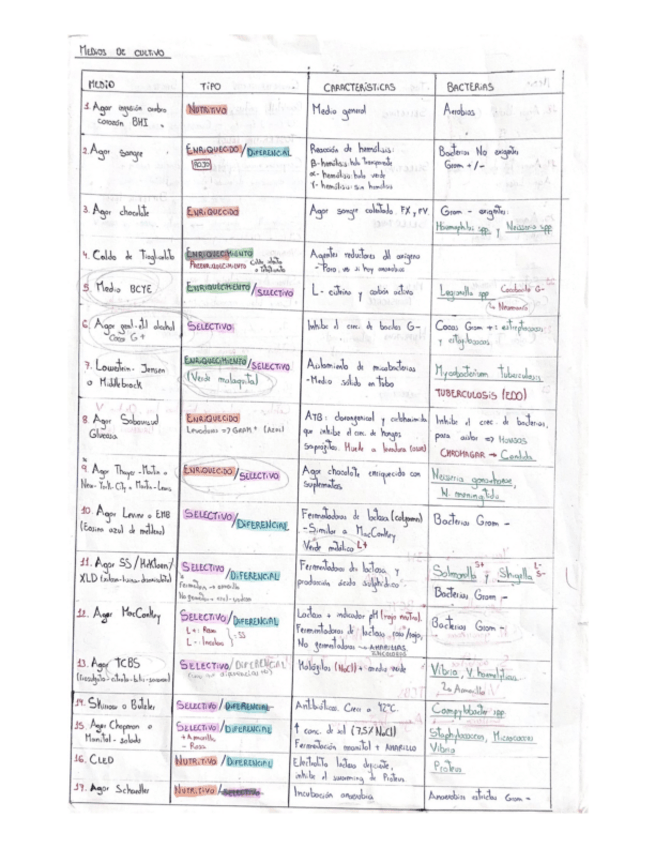 MEDIOS DE CULTIVO
MEDIO TIPO CARACTERÍSTICAS BACTERIAS
1. Agar infusión cerebro corazón BHI.
NUTRITIVO
Medio general
Aerobias
2. Agar sangre
ENRIQUECIDO/DIFERENCIAL
ROJO
Reacción de hemólisis:
β-hemólisis: halo transparente
α-hemólisis: halo verde
γ-hemólisis: sin hemólisis
Bacterias No exigentes
Gram +/-
3. Agar chocolate
ENRIQUECIDO
Agar sangre calentado. FX, FV
Gram - exigentes:
Haemophilus spp. y Neisseria spp.
4. Caldo de Tioglicolato
ENRIQUECIMIENTO
PREENRIQUECIMIENTO
Agentes reductores del oxígeno
- Para ver si hay anaerobios
5. Medio BCYE
ENRIQUECIMIENTO/SELECTIVO
L-cisteína y carbón activo
Legionella spp.
6. Agar fenil-etil alcohol
Cocos G+
SELECTIVO
Inhibe el crec. de bacilos G-
Cocos Gram +: estreptococos
y estafilococos.
7. Lowenstein-Jensen
o Middlebrook
ENRIQUECIMIENTO/SELECTIVO
(Verde malaquita)
Aislamiento de micobacterias
- Medio sólido en tubo
Mycobacterium tuberculosis
TUBERCULOSIS (EDO)
8. Agar Sabouraud
Glucosa
ENRIQUECIDO
Levaduras => GRAM+ (AZUL)
ATB: cloranfenicol y cicloheximida
que inhibe el crec. de hongos
saprofitos. Huele a levadura
Inhibe el crec. de bacterias,
para aislar => HONGOS
CHROMAGAR → Candida
9. Agar Thayer-Martin o
New-York-City o Martin-Lewis
ENRIQUECIDO/SELECTIVO
Agar chocolate enriquecido con
suplementos
Neisseria gonorrhoeae,
N. meningitidis
10. Agar Levine o EMB
(Eosina azul de metileno)
SELECTIVO/DIFERENCIAL
Fermentadoras de lactosa
- Similar a MacConkey
Verde metálico L+
Bacterias Gram -
11. Agar SS/Hektoen/
XLD
SELECTIVO/DIFERENCIAL
Fermentan → amarillo
Fermentadoras de lactosa y
producción ácido sulfhídrico
Salmonella S+ y Shigella L- S-
Bacterias Gram -
12. Agar MacConkey
SELECTIVO/DIFERENCIAL
L+: Rosa
L-: Incoloro
= SS
Lactosa + indicador pH (rojo neutro).
Fermentadoras de lactosa, rosa/rojo,
No fermentadoras → AMARILLAS
INCOLORO
Bacterias Gram -
13. Agar TCBS
SELECTIVO/DIFERENCIAL
Halófilos (NaCl)
Vibrio, V.
↳ Amarillo
14. Skirrow o Butzler
SELECTIVO/DIFERENCIAL
Antibióticos. Crece a 42°C.
Campylobacter spp.
15. Agar Chapman o
Manitol-salado
SELECTIVO/DIFERENCIAL
+ Amarillo
- Rosa
↑ conc. de sal (7,5% NaCl)
Fermentación manitol + AMARILLO
Staphylococcus, Micrococcus
Vibrio
16. CLED
NUTRITIVO/DIFERENCIAL
Electrolito lactosa deficiente,
inhibe el swarming de Proteus
Proteus
17. Agar Schaedler
NUTRITIVO/SELECTIVO
Incubación anaerobia
Anaerobios estrictos Gram -